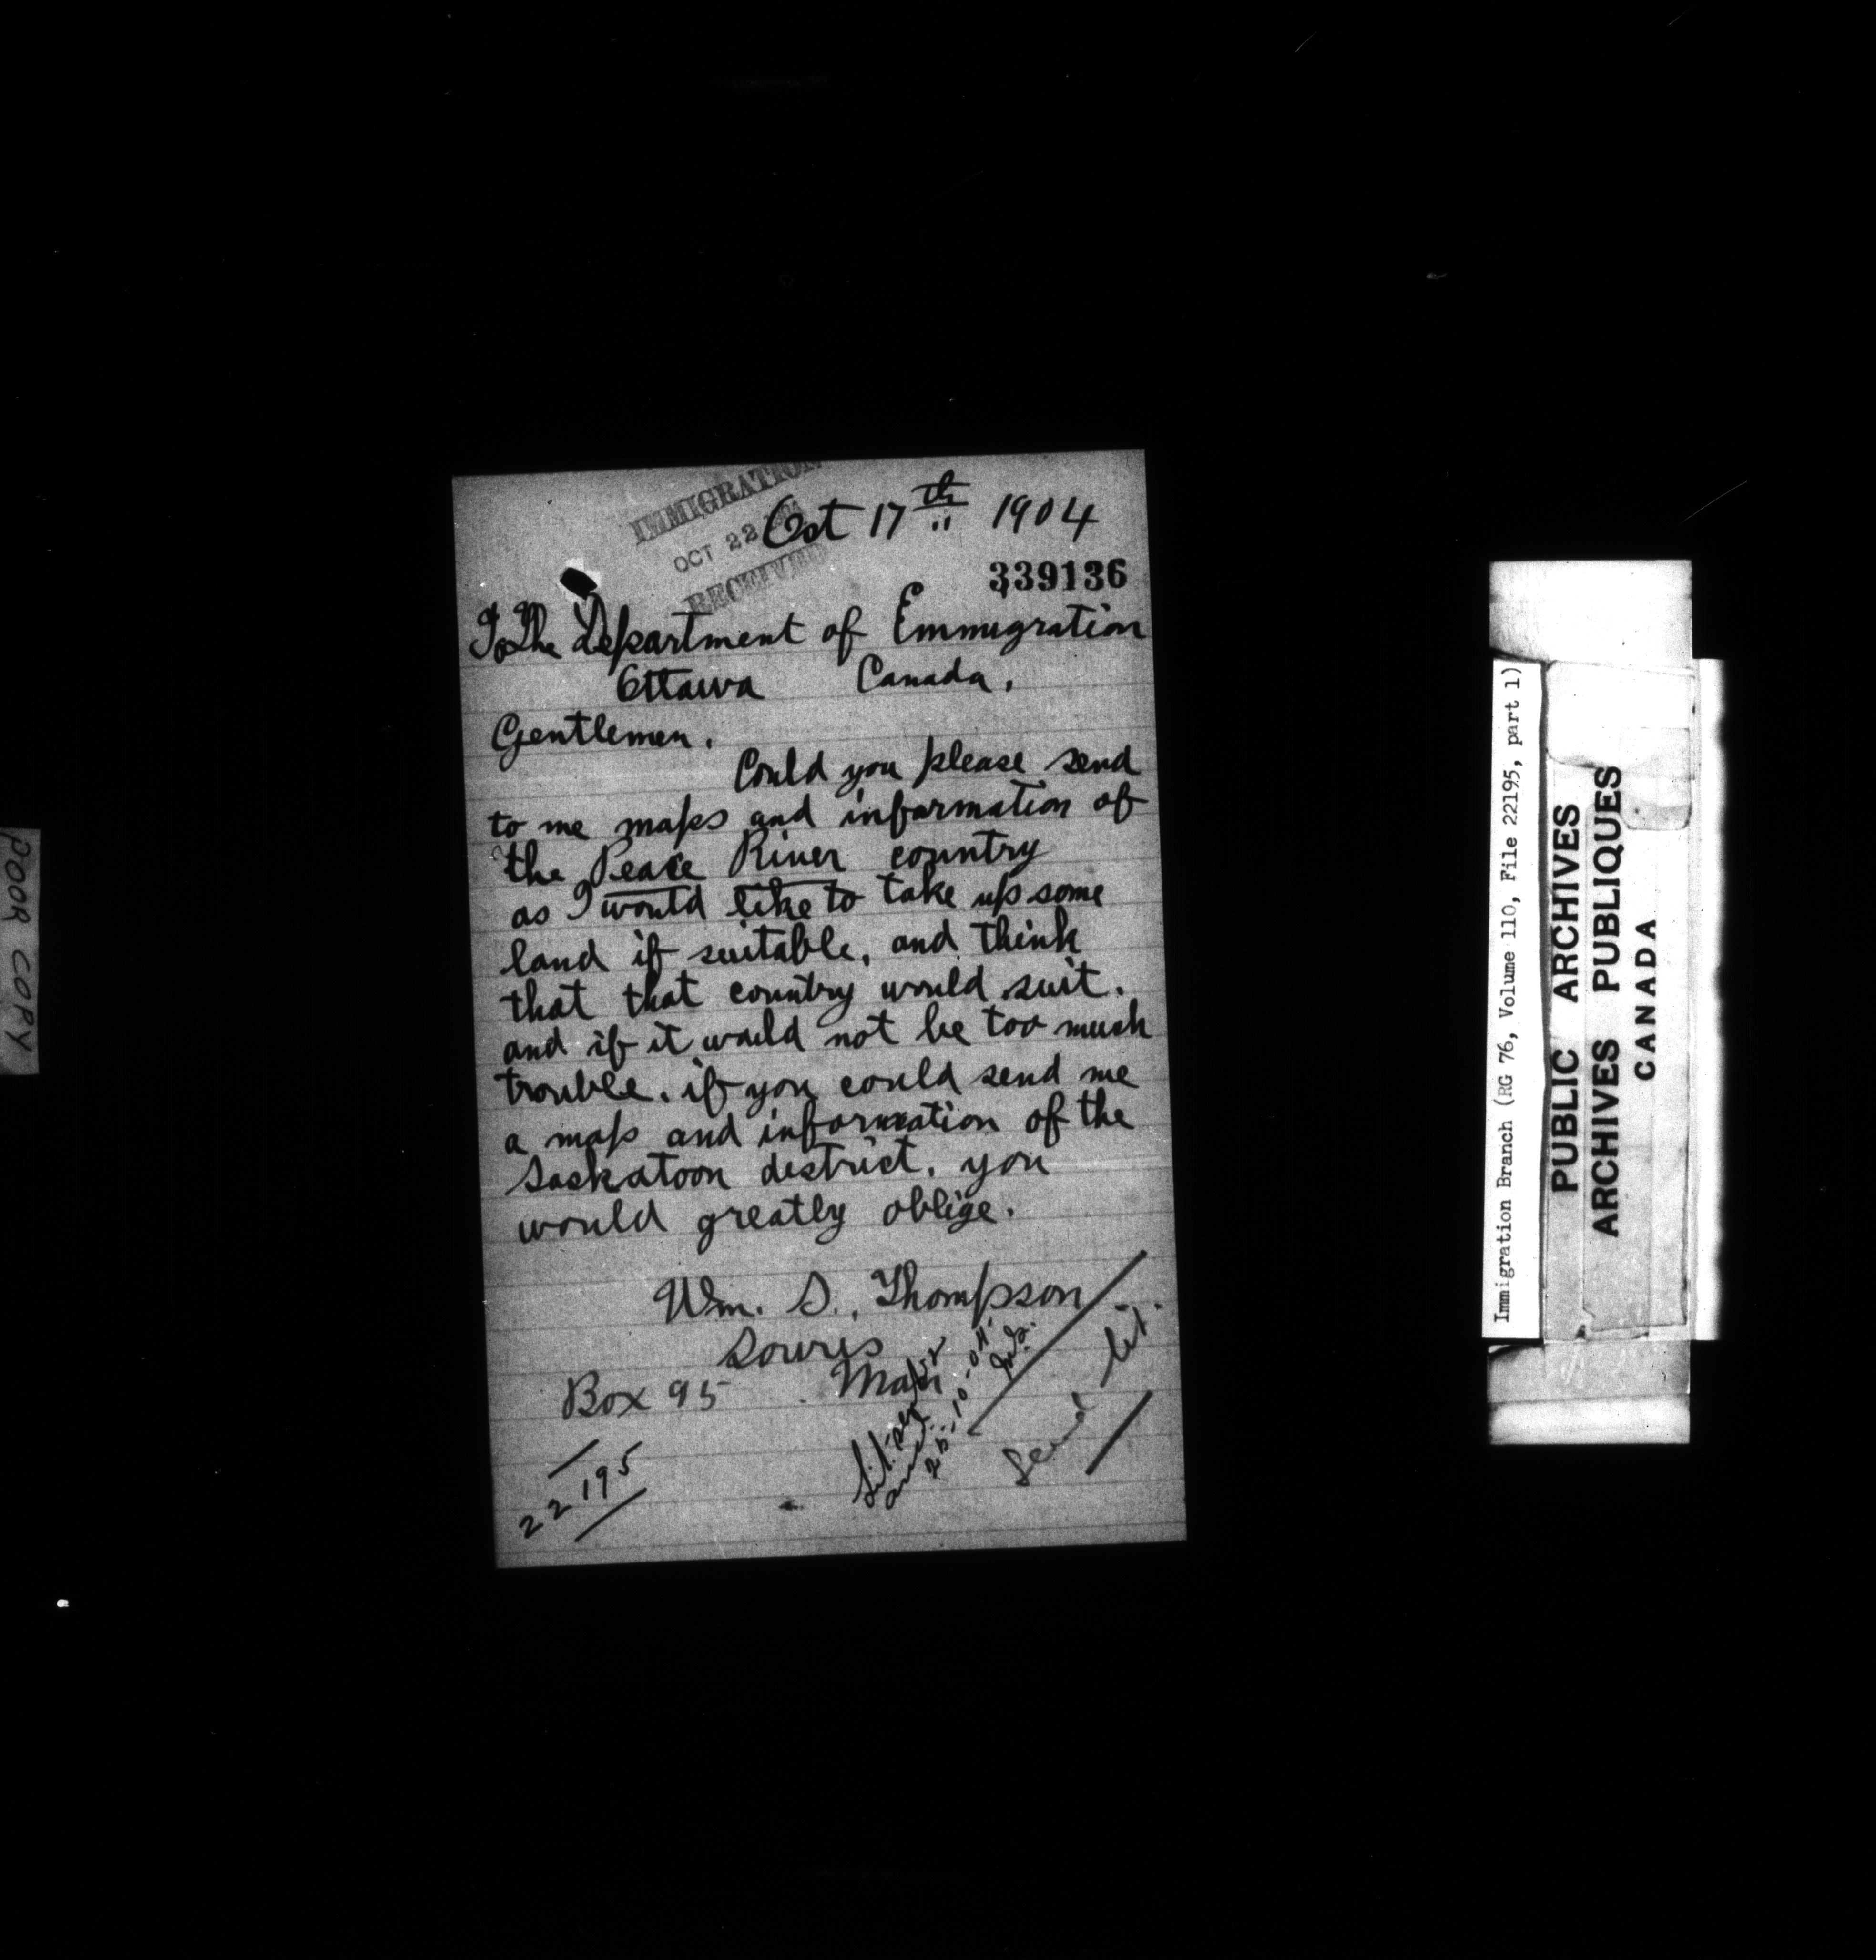 IMMIGRATION
OCT 22 1904
RECEIVED
Oct 17th 1904
339136
To The Department of Emmigration
Ottawa Canada.
Gentlemen.
Could you please send
to me maps and information of
the Peace River country
as I would like to take up some
land if suitable, and think
that that country would suit.
and if it would not be too much
trouble. if you could send me
a map and information of the
Saskatoon district. you
would greatly oblige.
Wm. S. Thompson
Souris
Box 95 Man
22195
Lit.
25-10-04.
Send lit.
POOR COPY
Immigration Branch (RG 76, Volume 110, File 22195, part 1)
PUBLIC ARCHIVES
ARCHIVES PUBLIQUES
CANADA